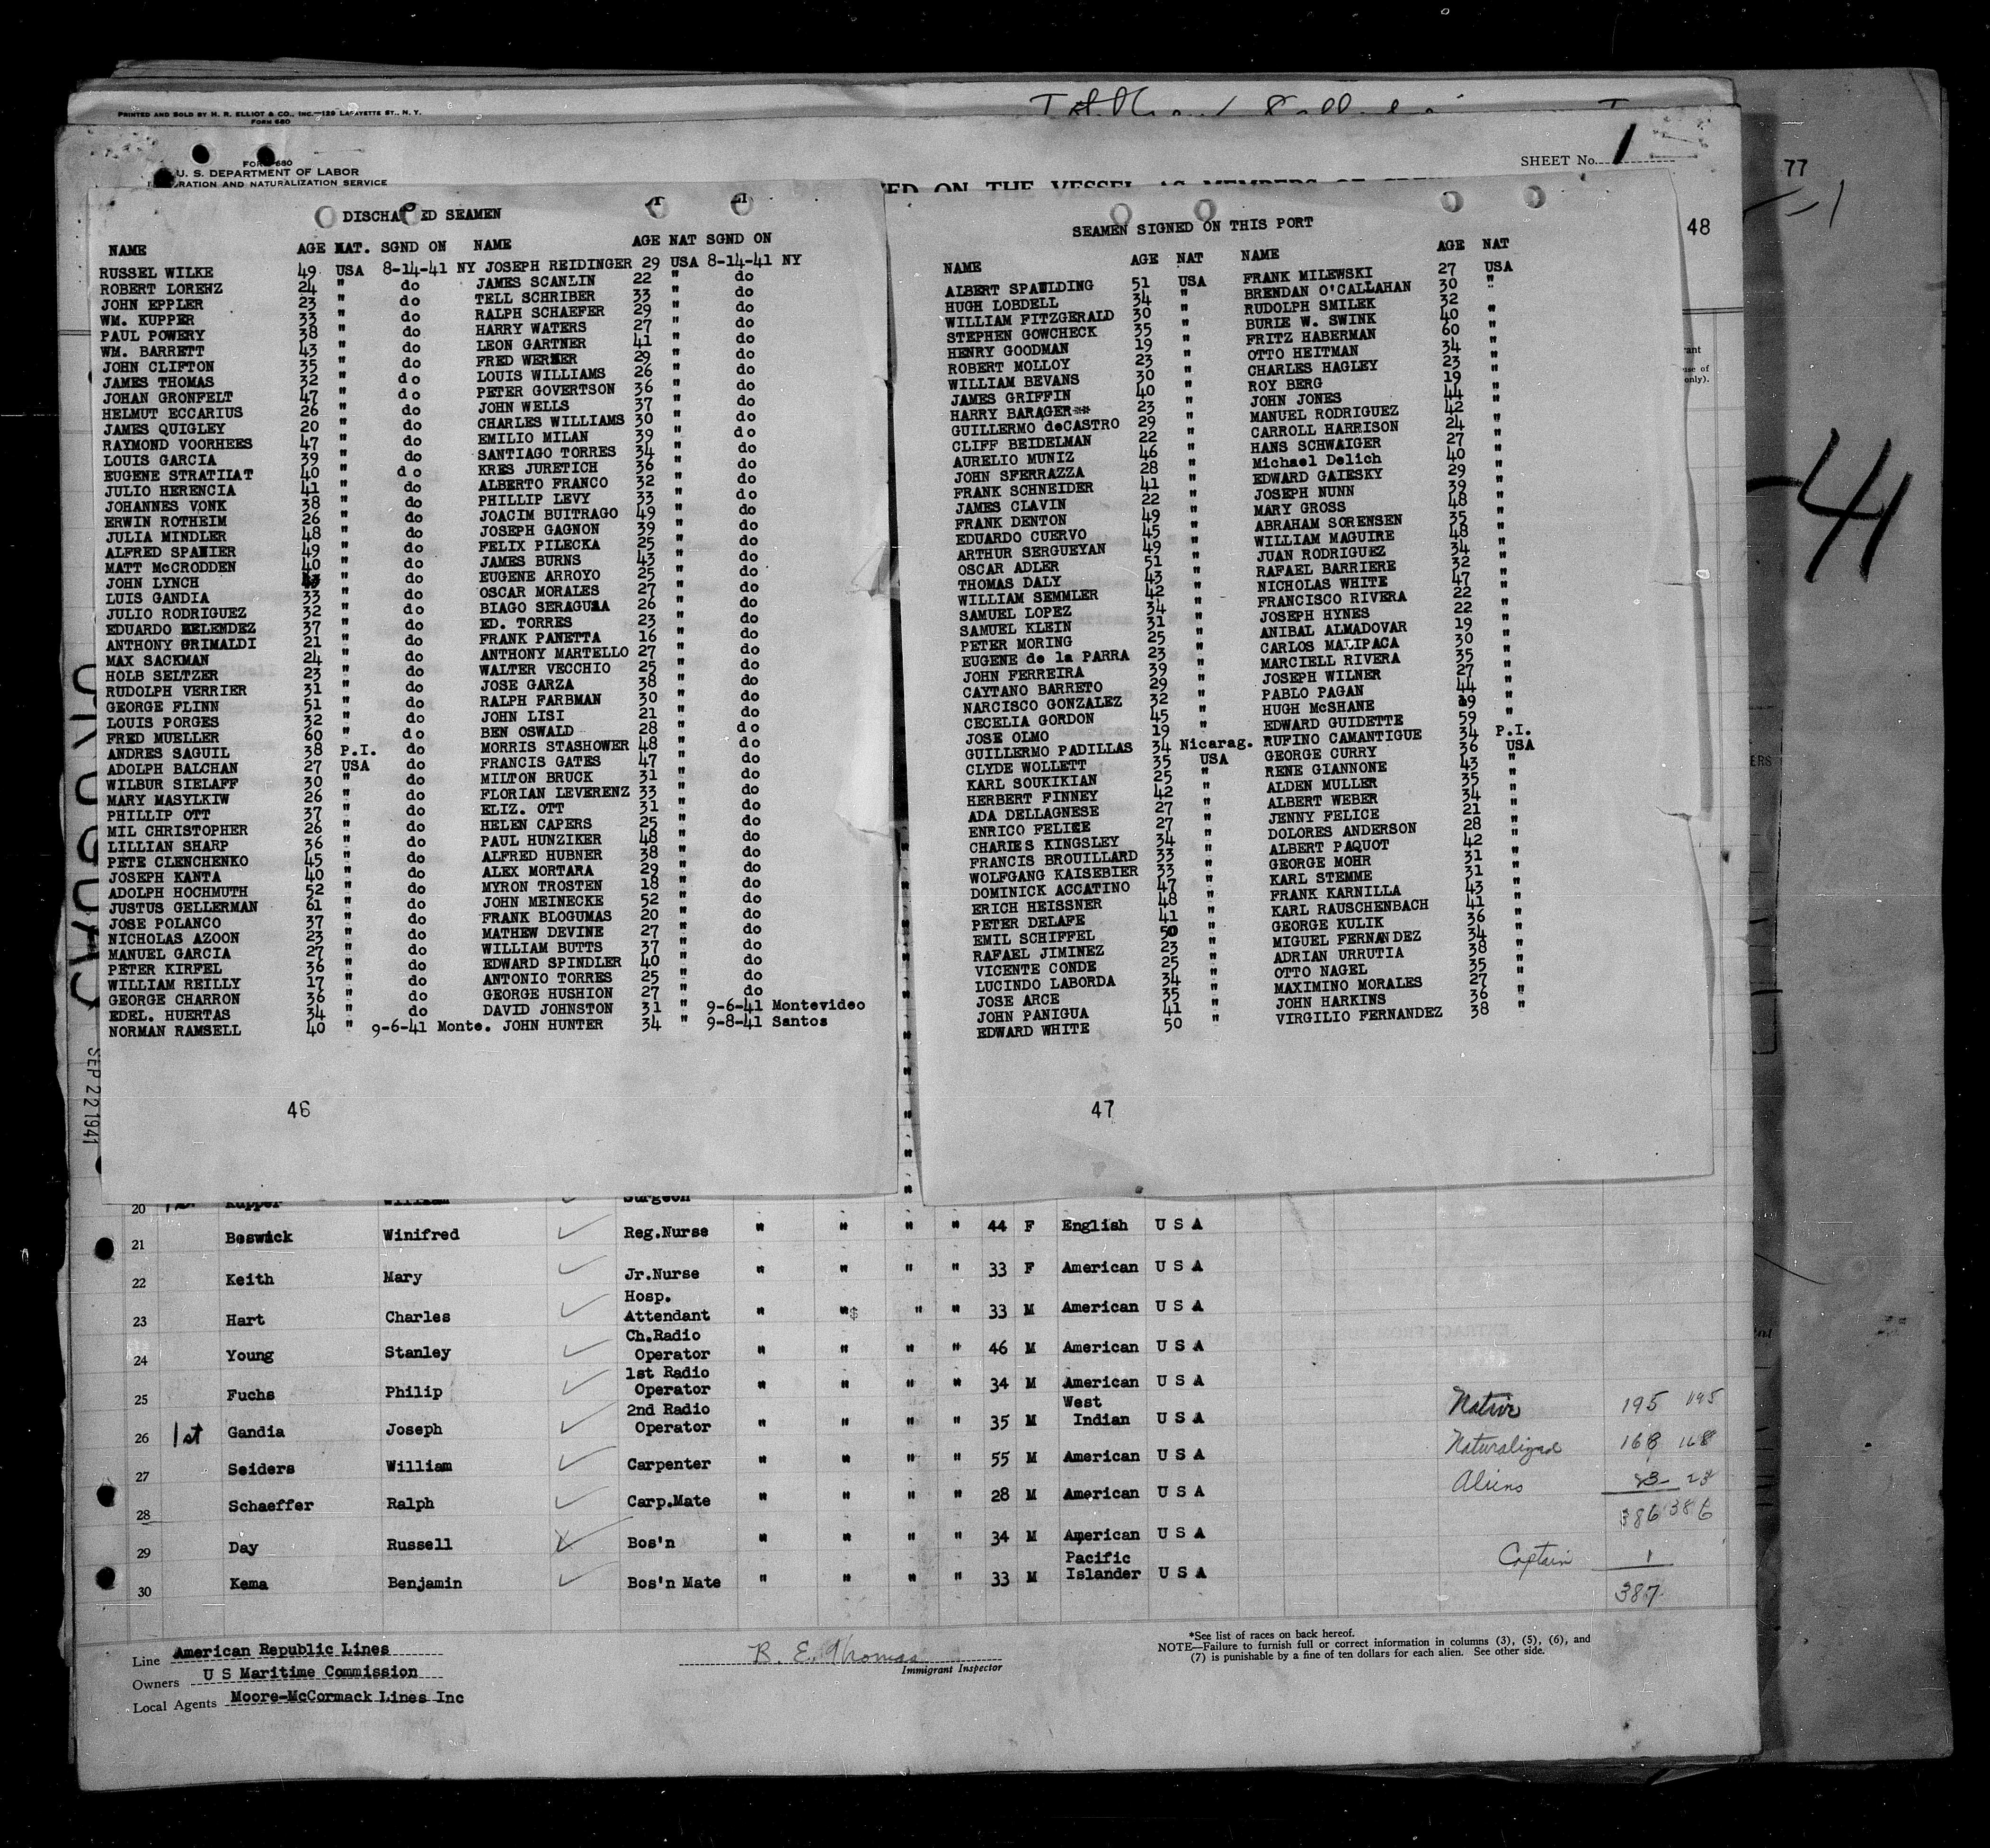 PRINTED AND SOLD BY H. R. ELLIOT & CO., INC.—129 LAFAYETTE ST., N. Y.
FORM 680
FORM 680
U. S. DEPARTMENT OF LABOR
IMMIGRATION AND NATURALIZATION SERVICE
SHEET No. 1
77
48
41
ON THE VESSEL AS MEMBERS OF
DISCHARGED SEAMEN
NAME AGE NAT. SGND ON NAME AGE NAT SGND ON
RUSSEL WILKE 49 USA 8-14-41 NY JOSEPH REIDINGER 29 USA 8-14-41 NY
ROBERT LORENZ 24 " do JAMES SCANLIN 22 " do
JOHN EPPLER 23 " do TELL SCHRIBER 33 " do
WM. KUPPER 33 " do RALPH SCHAEFER 29 " do
PAUL POWERY 38 " do HARRY WATERS 27 " do
WM. BARRETT 43 " do LEON GARTNER 41 " do
JOHN CLIFTON 35 " do FRED WERNER 29 " do
JAMES THOMAS 32 " do LOUIS WILLIAMS 26 " do
JOHAN GRONFELT 47 " do PETER GOVERTSON 36 " do
HELMUT ECCARIUS 26 " do JOHN WELLS 37 " do
JAMES QUIGLEY 20 " do CHARLES WILLIAMS 30 " do
RAYMOND VOORHEES 47 " do EMILIO MILAN 39 " do
LOUIS GARCIA 39 " do SANTIAGO TORRES 34 " do
EUGENE STRATIIAT 40 " do KRES JURETICH 36 " do
JULIO HERENCIA 41 " do ALBERTO FRANCO 32 " do
JOHANNES VONK 38 " do PHILLIP LEVY 33 " do
ERWIN ROTHEIM 26 " do JOACIM BUITRAGO 49 " do
JULIA MINDLER 48 " do JOSEPH GAGNON 39 " do
ALFRED SPANIER 49 " do FELIX PILECKA 25 " do
MATT McCRODDEN 40 " do JAMES BURNS 43 " do
JOHN LYNCH 43 " do EUGENE ARROYO 25 " do
LUIS GANDIA 33 " do OSCAR MORALES 27 " do
JULIO RODRIGUEZ 32 " do BIAGO SERAGUSA 26 " do
EDUARDO MELENDEZ 37 " do ED. TORRES 23 " do
ANTHONY GRIMALDI 21 " do FRANK PANETTA 16 " do
MAX SACKMAN 24 " do ANTHONY MARTELLO 27 " do
HOLB SELTZER 23 " do WALTER VECCHIO 25 " do
RUDOLPH VERRIER 31 " do JOSE GARZA 38 " do
GEORGE FLINN 51 " do RALPH FARBMAN 30 " do
LOUIS PORGES 32 " do JOHN LISI 21 " do
FRED MUELLER 60 " do BEN OSWALD 28 " do
ANDRES SAGUIL 38 P.I. do MORRIS STASHOWER 48 " do
ADOLPH BALCHAN 27 USA do FRANCIS GATES 47 " do
WILBUR SIELAFF 30 " do MILTON BRUCK 31 " do
MARY MASYLKIW 26 " do FLORIAN LEVERENZ 33 " do
PHILLIP OTT 37 " do ELIZ. OTT 31 " do
MIL CHRISTOPHER 26 " do HELEN CAPERS 25 " do
LILLIAN SHARP 36 " do PAUL HUNZIKER 48 " do
PETE CLENCHENKO 45 " do ALFRED HUBNER 38 " do
JOSEPH KANTA 40 " do ALEX MORTARA 29 " do
ADOLPH HOCHMUTH 52 " do MYRON TROSTEN 18 " do
JUSTUS GELLERMAN 61 " do JOHN MEINECKE 52 " do
JOSE POLANCO 37 " do FRANK BLOGUMAS 20 " do
NICHOLAS AZOON 23 " do MATHEW DEVINE 27 " do
MANUEL GARCIA 27 " do WILLIAM BUTTS 37 " do
PETER KIRFEL 36 " do EDWARD SPINDLER 40 " do
WILLIAM REILLY 17 " do ANTONIO TORRES 25 " do
GEORGE CHARRON 36 " do GEORGE HUSHION 27 " do
EDEL. HUERTAS 34 " do DAVID JOHNSTON 31 " 9-6-41 Montevideo
NORMAN RAMSELL 40 " 9-6-41 Monte. JOHN HUNTER 34 " 9-8-41 Santos
46
SEAMEN SIGNED ON THIS PORT
NAME AGE NAT NAME AGE NAT
ALBERT SPAULDING 51 USA FRANK MILEWSKI 27 USA
HUGH LOBDELL 34 " BRENDAN O'CALLAHAN 30 "
WILLIAM FITZGERALD 30 " RUDOLPH SMILEK 32 "
STEPHEN GOWCHECK 35 " BURIE W. SWINK 40 "
HENRY GOODMAN 19 " FRITZ HABERMAN 60 "
ROBERT MOLLOY 23 " OTTO HEITMAN 34 "
WILLIAM BEVANS 30 " CHARLES HAGLEY 23 "
JAMES GRIFFIN 40 " ROY BERG 19 "
HARRY BARAGER** 23 " JOHN JONES 44 "
GUILLERMO deCASTRO 29 " MANUEL RODRIGUEZ 42 "
CLIFF BEIDELMAN 22 " CARROLL HARRISON 24 "
AURELIO MUNIZ 46 " HANS SCHWAIGER 27 "
JOHN SFERRAZZA 28 " Michael Delich 40 "
FRANK SCHNEIDER 41 " EDWARD GAIESKY 29 "
JAMES CLAVIN 22 " JOSEPH NUNN 39 "
FRANK DENTON 49 " MARY GROSS 48 "
EDUARDO CUERVO 45 " ABRAHAM SORENSEN 35 "
ARTHUR SERGUEYAN 49 " WILLIAM MAGUIRE 48 "
OSCAR ADLER 51 " JUAN RODRIGUEZ 34 "
THOMAS DALY 43 " RAFAEL BARRIERE 32 "
WILLIAM SEMMLER 42 " NICHOLAS WHITE 47 "
SAMUEL LOPEZ 34 " FRANCISCO RIVERA 22 "
SAMUEL KLEIN 31 " JOSEPH HYNES 22 "
PETER MORING 25 " ANIBAL ALMADOVAR 19 "
EUGENE de la PARRA 23 " CARLOS MALIPACA 30 "
JOHN FERREIRA 39 " MARCIELL RIVERA 35 "
CAYTANO BARRETO 29 " JOSEPH WILNER 27 "
NARCISCO GONZALEZ 32 " PABLO PAGAN 44 "
CECELIA GORDON 45 " HUGH McSHANE 19 "
JOSE OLMO 19 " EDWARD GUIDETTE 59 "
GUILLERMO PADILLAS 34 Nicarag. RUFINO CAMANTIGUE 34 P.I.
CLYDE WOLLETT 35 USA GEORGE CURRY 36 USA
KARL SOUKIKIAN 25 " RENE GIANNONE 43 "
HERBERT FINNEY 42 " ALDEN MULLER 35 "
ADA DELLAGNESE 27 " ALBERT WEBER 34 "
ENRICO FELICE 27 " JENNY FELICE 21 "
CHARIES KINGSLEY 34 " DOLORES ANDERSON 28 "
FRANCIS BROUILLARD 33 " ALBERT PAQUOT 42 "
WOLFGANG KAISEBIER 33 " GEORGE MOHR 31 "
DOMINICK ACCATINO 47 " KARL STEMME 31 "
ERICH HEISSNER 48 " FRANK KARNILLA 43 "
PETER DELAFE 41 " KARL RAUSCHENBACH 41 "
EMIL SCHIFFEL 50 " GEORGE KULIK 36 "
RAFAEL JIMINEZ 23 " MIGUEL FERNANDEZ 34 "
VICENTE CONDE 25 " ADRIAN URRUTIA 38 "
LUCINDO LABORDA 34 " OTTO NAGEL 35 "
JOSE ARCE 35 " MAXIMINO MORALES 27 "
JOHN PANIGUA 41 " JOHN HARKINS 36 "
EDWARD WHITE 50 " VIRGILIO FERNANDEZ 38 "
47
SEP 22 1941
20 Kupper William Surgeon
21 Beswick Winifred Reg.Nurse " " " " 44 F English U S A
22 Keith Mary Jr.Nurse " " " " 33 F American U S A
23 Hart Charles Hosp. Attendant " "$ " " 33 M American U S A
24 Young Stanley Ch.Radio Operator " " " " 46 M American U S A
25 Fuchs Philip 1st Radio Operator " " " " 34 M American U S A
26 1st Gandia Joseph 2nd Radio Operator " " " " 35 M West Indian U S A
27 Seiders William Carpenter " " " " 55 M American U S A
28 Schaeffer Ralph Carp.Mate " " " " 28 M American U S A
29 Day Russell Bos'n " " " " 34 M American U S A
30 Kema Benjamin Bos'n Mate " " " " 33 M Pacific Islander U S A
Native 195 195
Naturalized 168 168
Aliens 23 23
386 386
Captain 1
387
Line American Republic Lines
Owners U S Maritime Commission
Local Agents Moore-McCormack Lines Inc
R. E. Thomas
Immigrant Inspector
*See list of races on back hereof.
NOTE—Failure to furnish full or correct information in columns (3), (5), (6), and
(7) is punishable by a fine of ten dollars for each alien. See other side.